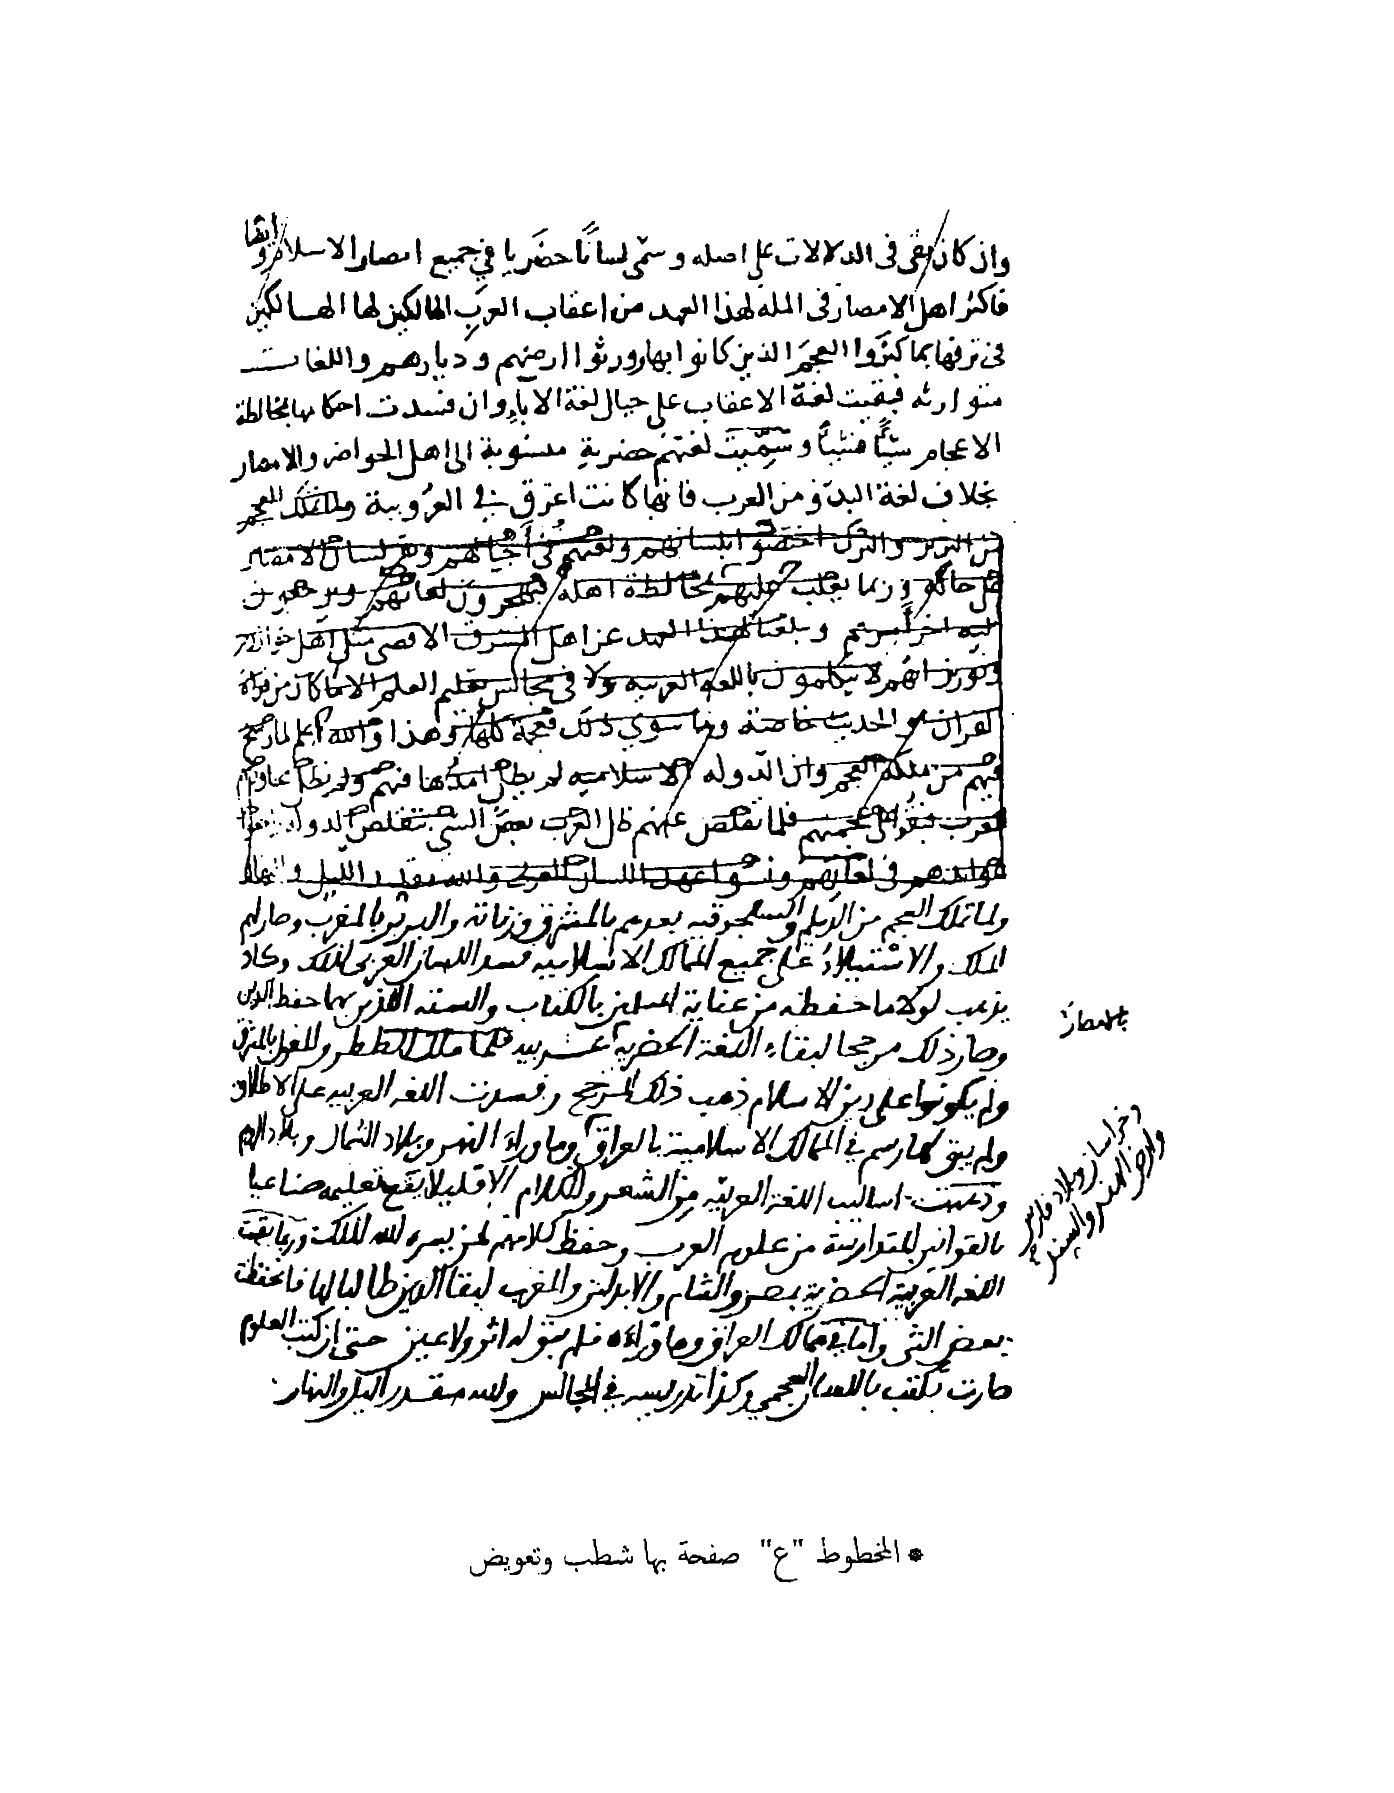 وان كان بقى فى الدلالات على اصله وسمّى لسانًا حضَريا في جميع امصار الاسلام وايضا
فاكثر اهل الامصار فى المله لهذا العهد من اعقاب العرَبِ المالكين لها الهالكين
فى ترفها بما كثَروا العجَمَ الذين كانوا بها وورثوا ارضهم وديارهم واللغات
متوارثه فبقيت لغة الاعقاب على حيال لغة الاباءِ وان فسدت احكامها بمخالطة
الاعجام شيًّا فشيًّا وسُمِّيَت لغتهم حضرية منسوبة الى اهل الحواضر والامصار
بخلاف لغة البدو من العرب فانها كانت اعرق في العرُوبية ولما تملّك العجم
من البربر والترك اختصّوا بلسانهم ولغتهم فى أجيالهم وبقى لسان الامصار
على حاله وربما يغلب عليهم بمخالطة اهله فيهجرون لغاتهم ويرجعون
اليه اخر امرهم وبلغنا لهذا العهد عن اهل المشرق الاقصى مثل اهل خوارزم
انهم لا يتكلمون باللغه العربيه ولا فى مجالس تعليم العلم الا ما كان من قراة
القران والحديث خاصة وما سوى ذلك فعجمة كلها وهذا والله اعلم لما رسخ
فيهم من ملكة العجم وان الدوله الاسلاميه لم يطل امدُها فيهم ولم تطل
العرب فبقوا على عجمتهم فلما تقلص عنهم ظل العرب بعضَ الشى بتقلص الدولة
عوايدهم فى لغاتهم ونسُوا عهد اللسان العربى والله مقدر الليل والنهار
ولما تملك العجم من الديلم والسلجوقيه بعدهم بالمشرق وزناته والبربر بالمغرب وصار لهم
الملك والاستيلاءُ على جميع الممالك الاسلاميه فسد اللسان العربى لذلك وكاد
يذهب لولا ما حفظه من عناية المسلمين بالكتاب والسنه اللذين بهما حفظ الدين
وصار ذلك مرجحا لبقاءِ اللغة الحضريه عربيه فلما ملك الططر والمغول بالمشرق
بالامصار
ولم يكونوا على دين الاسلام ذهب ذلك المرجح وفسدت اللغه العربيه على الاطلاق
ولم يبق لها رسم في الممالك الاسلامية بالعراق وما وراءَ النهر وبلاد الشمال وبلاد الروم
وخراسان وبلاد فارس
وارض الهند والسند
وذهبت اساليب اللغة العربيّه من الشعر والكلام الا قليلا يقع تعليمه صناعيا
بالقوانين المتدارسة من علوم العرب وحفظ كلامهم لمن يسره الله لذلك وربما بقيت
اللغه العربية الحضرية بمصر والشام والاندلس والمغرب لبقا الدين طالبا لها فانحفظت
بعض الشى واما في ممالك العراق وما وراءَه فلم يبق له اثر ولا عين حتى ان كتب العلوم
صارت تكتب باللسان العجمي وكذا تدريسه في المجالس والله مقدر الليل والنهار.
* المخطوط "ع" صفحة بها شطب وتعويض